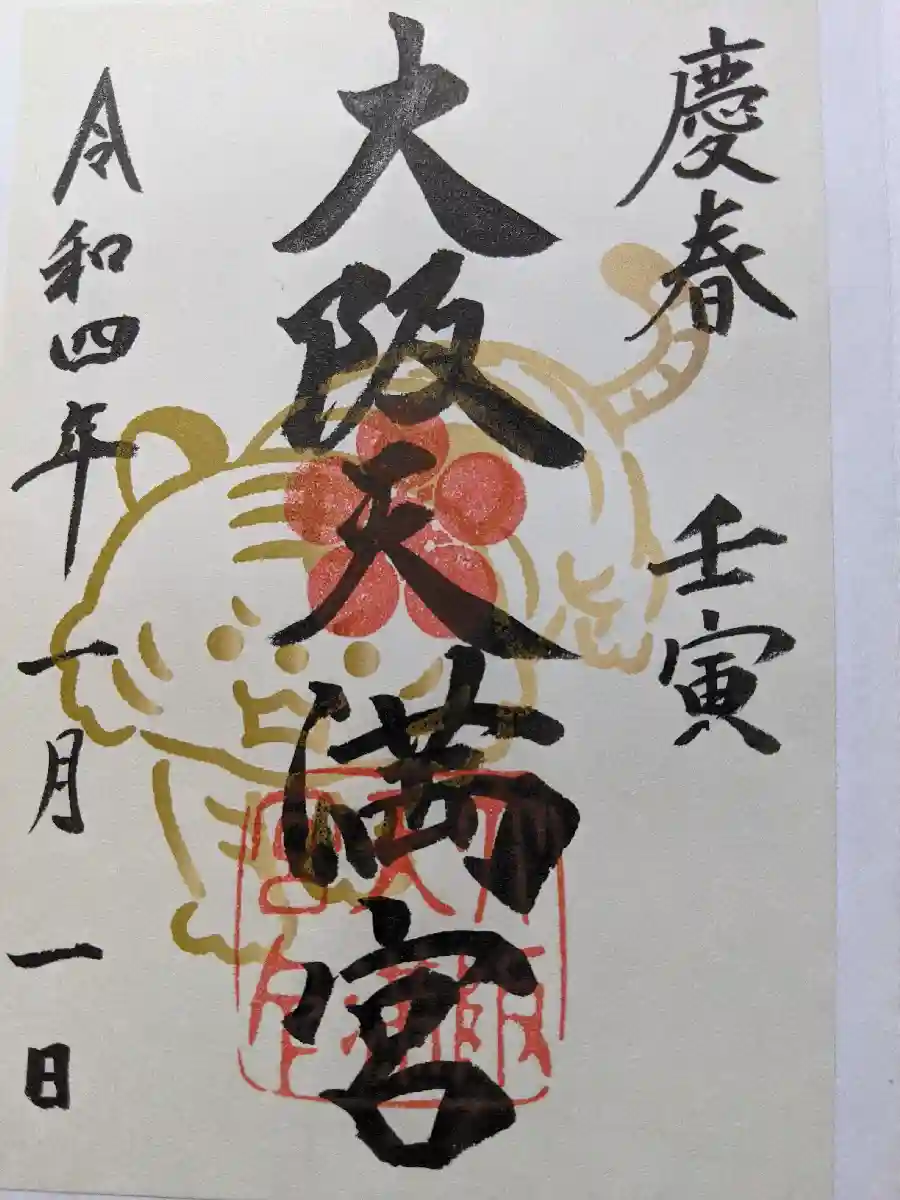 慶春 壬寅
大阪天満宮
令和四年一月一日